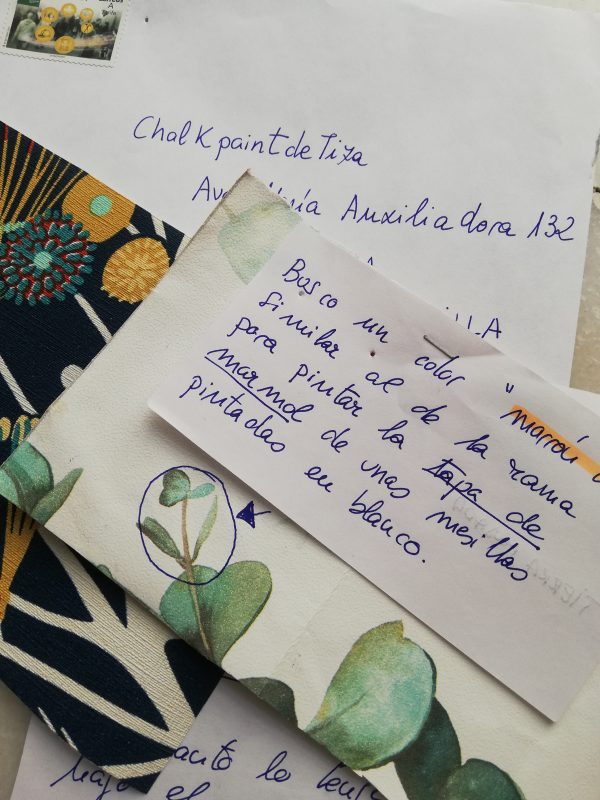 Chalkpaint de Tiza
Auxiliadora 132
Busco un color "marrón
similar al de la rama
para pintar la tapa de
marmol de unas mesillas
pintadas en blanco.
lo
el